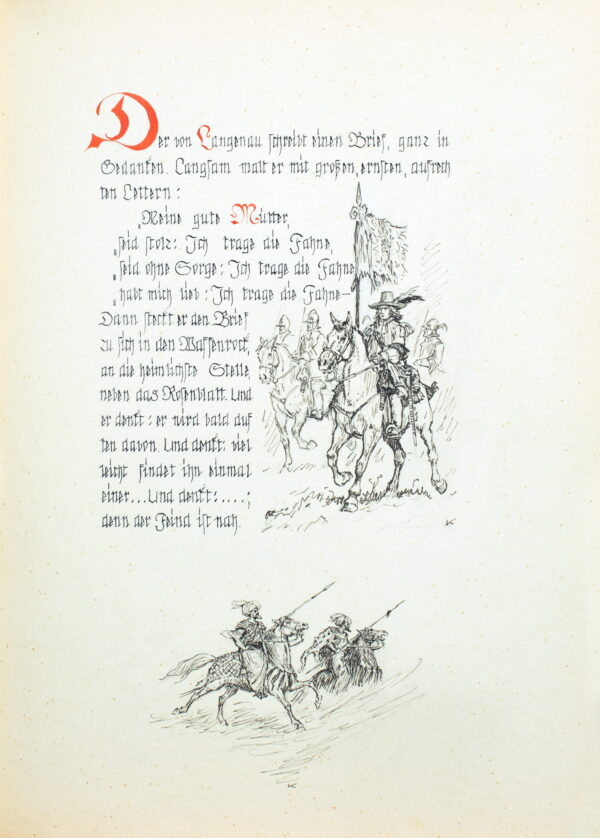 Der von Langenau schreibt einen Brief, ganz in
Gedanken. Langsam malt er mit großen, ernsten, aufrech
ten Lettern:
„Meine gute Mutter,
„seid stolz: Ich trage die Fahne,
„seid ohne Sorge: Ich trage die Fahne
„habt mich lieb: Ich trage die Fahne—
Dann steckt er den Brief
zu sich in den Waffenrock,
an die heimlichste Stelle,
neben das Rosenblatt. Und
er denkt: er wird bald duf
ten davon. Und denkt: viel
leicht findet ihn einmal
einer... Und denkt:....;
denn der Feind ist nah.